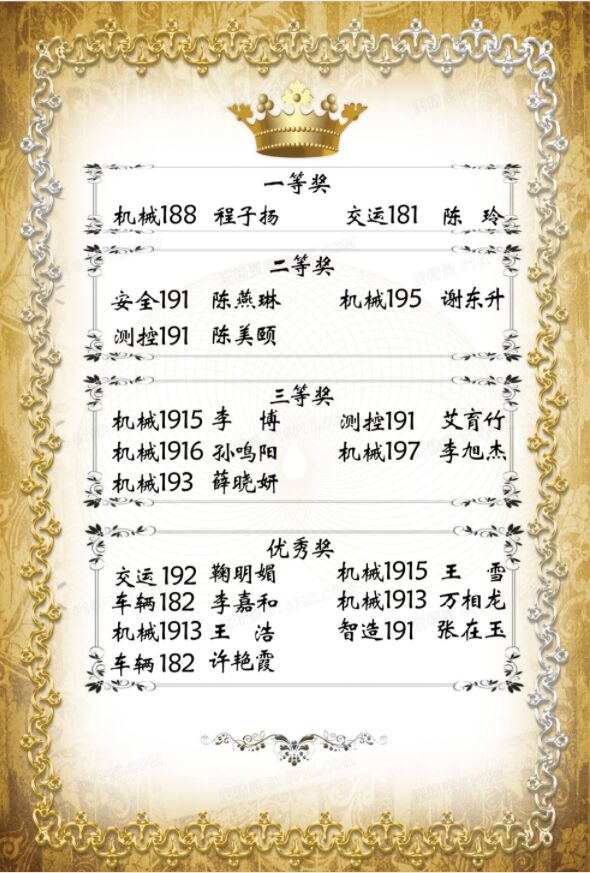 一等奖
机械188 程子扬 交运181 陈 玲
二等奖
安全191 陈燕琳 机械195 谢东升
测控191 陈美颐
三等奖
机械1915 李 博 测控191 艾育竹
机械1916 孙鸣阳 机械197 李旭杰
机械193 薛晓妍
优秀奖
交运 192 鞠明媚 机械1915 王 雪
车辆182 李嘉和 机械1913 万相龙
机械1913 王 浩 智造191 张在玉
车辆182 许艳霞